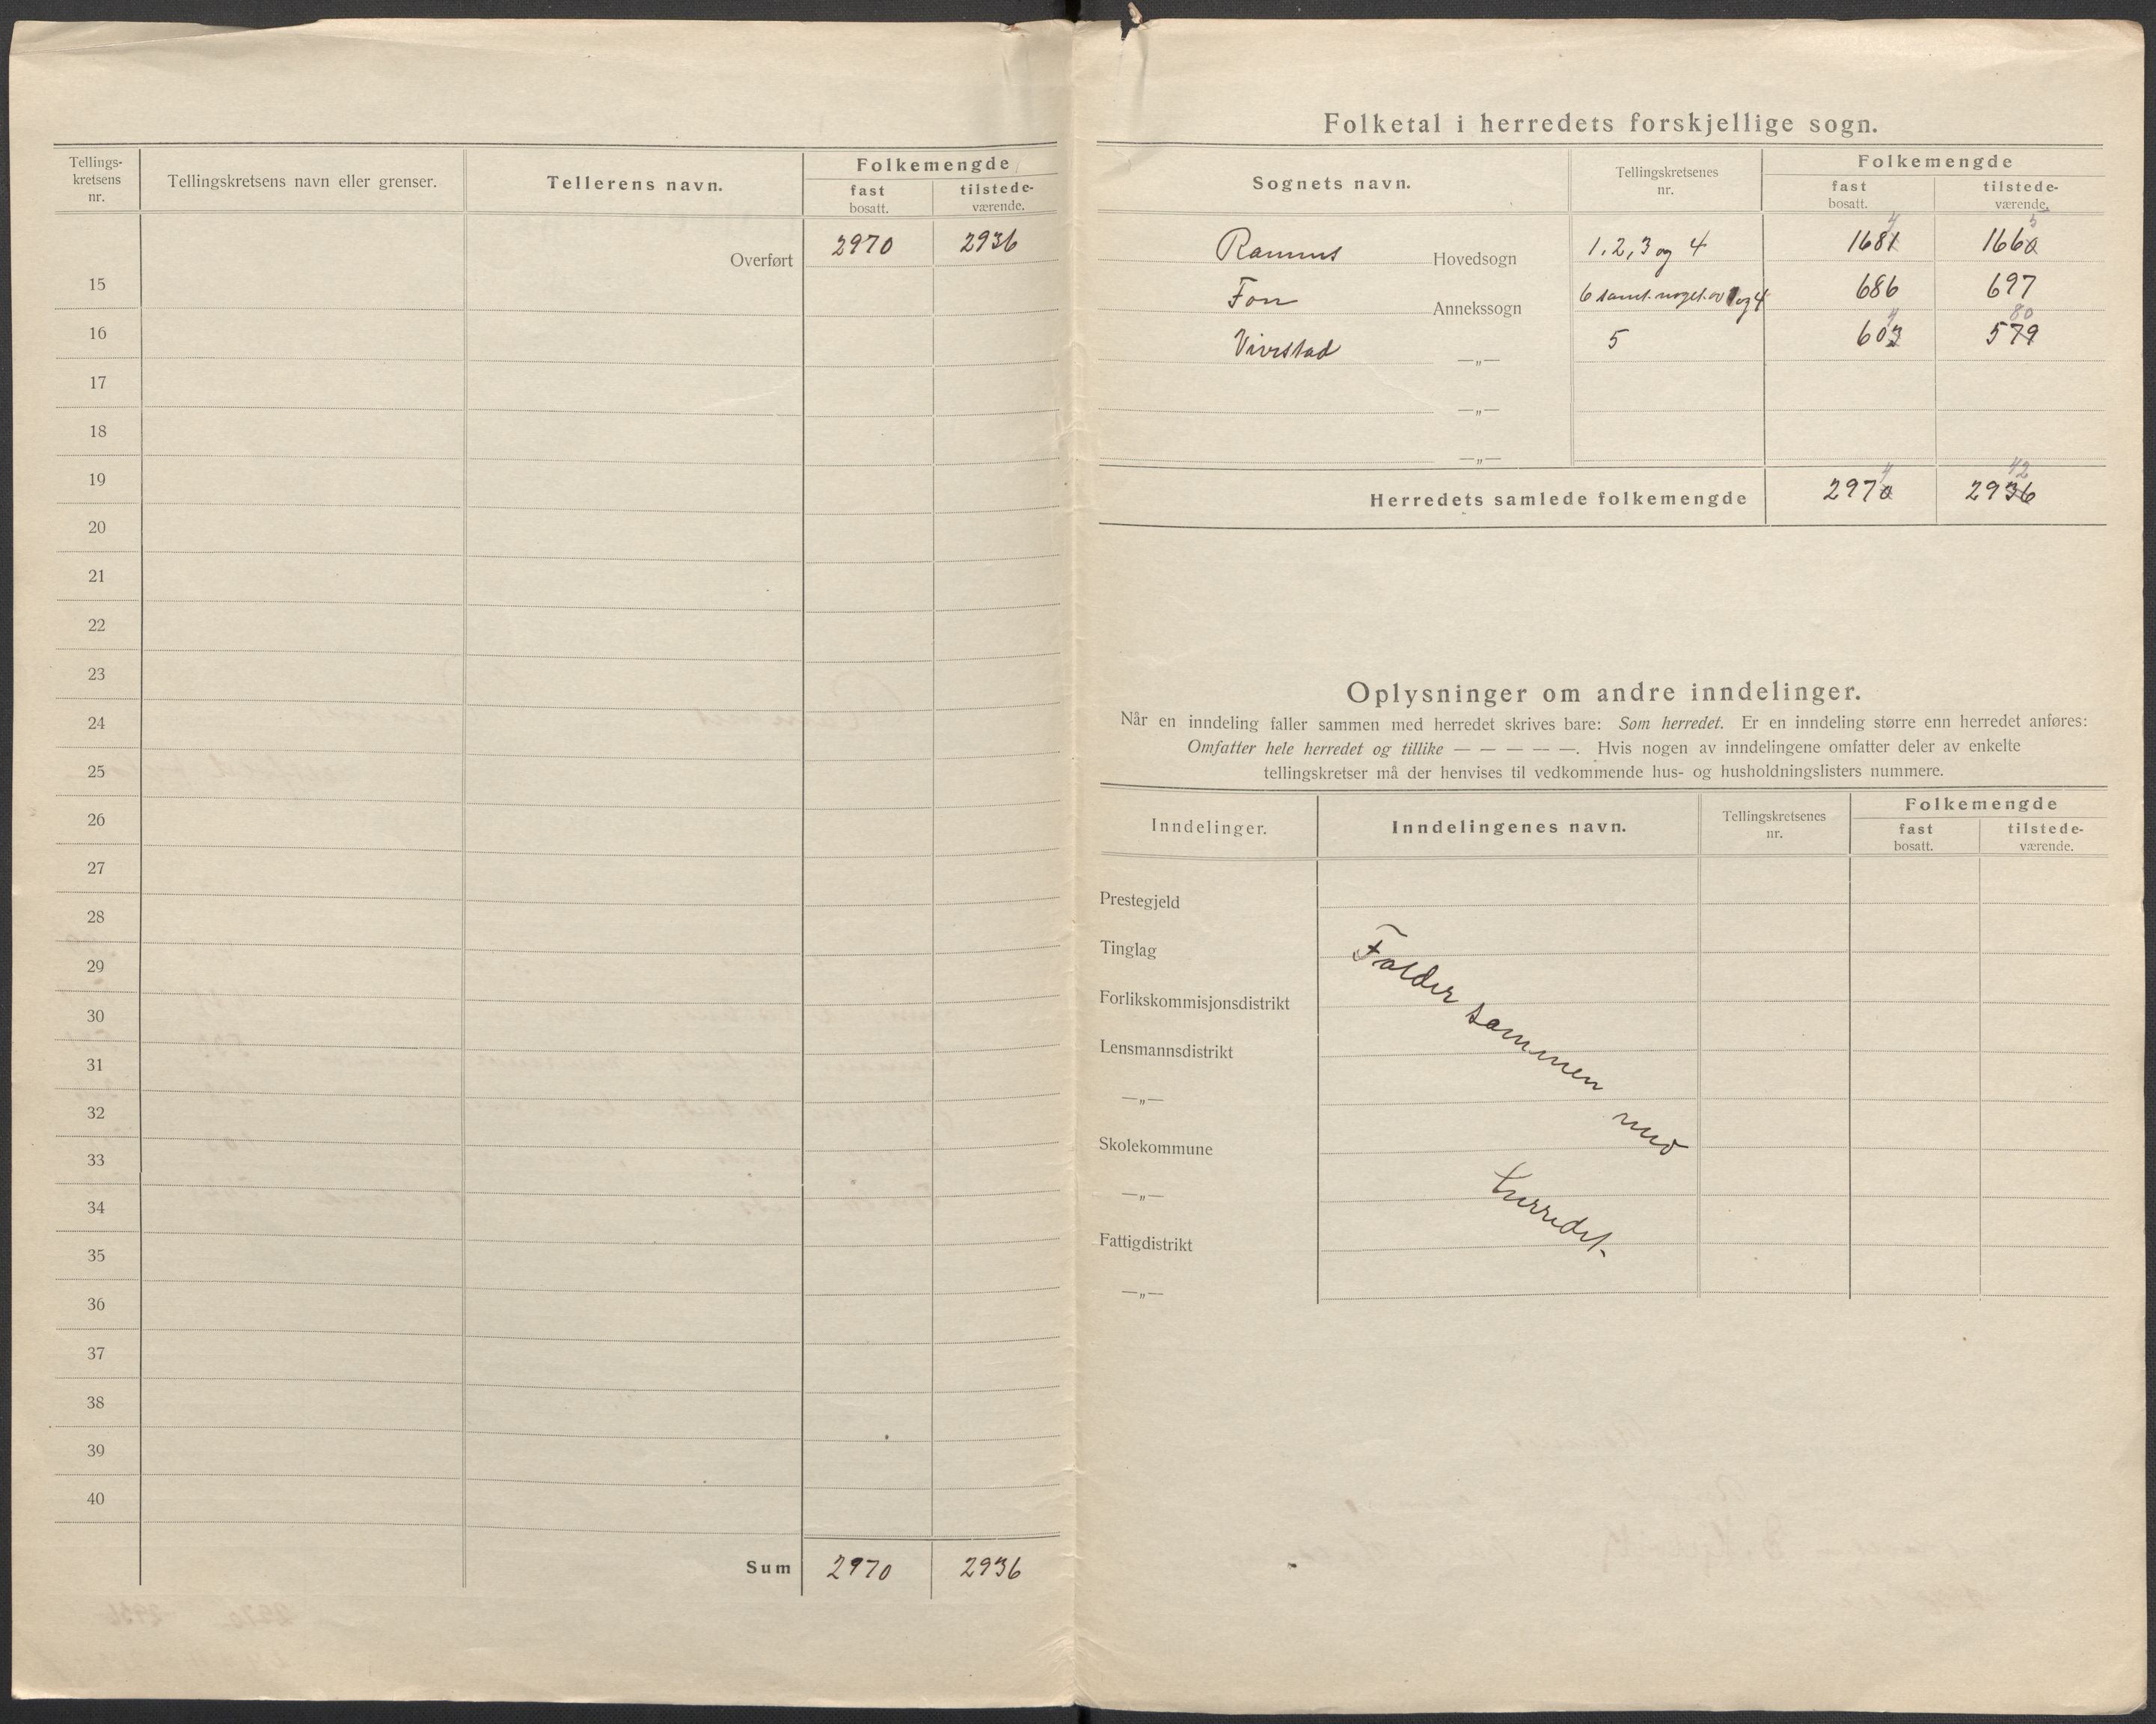 Tellings-
kretsens
nr.
Tellingskretsens navn eller grenser.
Tellerens navn.
Folkemengde
fast
bosatt.
tilstede-
værende.
Overført 2970 2936
15
16
17
18
19
20
21
22
23
24
25
26
27
28
29
30
31
32
33
34
35
36
37
38
39
40
Sum 2970 2936
Folketal i herredets forskjellige sogn.
Sognets navn.
Tellingskretsenes
nr.
Folkemengde
fast
bosatt.
tilstede-
værende.
4 5
Ramnes Hovedsogn 1, 2, 3 og 4 1681 1660
Fon Annekssogn 6 samt noget av 1 og 4 686 697
4 80
Vivestad —„— 5 603 579
—„—
—„—
4 42
Herredets samlede folkemengde 2970 2936
Oplysninger om andre inndelinger.
Når en inndeling faller sammen med herredet skrives bare: Som herredet. Er en inndeling større enn herredet anføres:
Omfatter hele herredet og tillike — — — — —. Hvis nogen av inndelingene omfatter deler av enkelte
tellingskretser må der henvises til vedkommende hus- og husholdningslisters nummere.
Inndelinger.
Inndelingenes navn.
Tellingskretsenes
nr.
Folkemengde
fast
bosatt.
tilstede-
værende.
Prestegjeld
Tinglag
Forlikskommisjonsdistrikt
Lensmannsdistrikt
—„—
Skolekommune
—„—
Fattigdistrikt
—„—
Falder sammen med
herredet